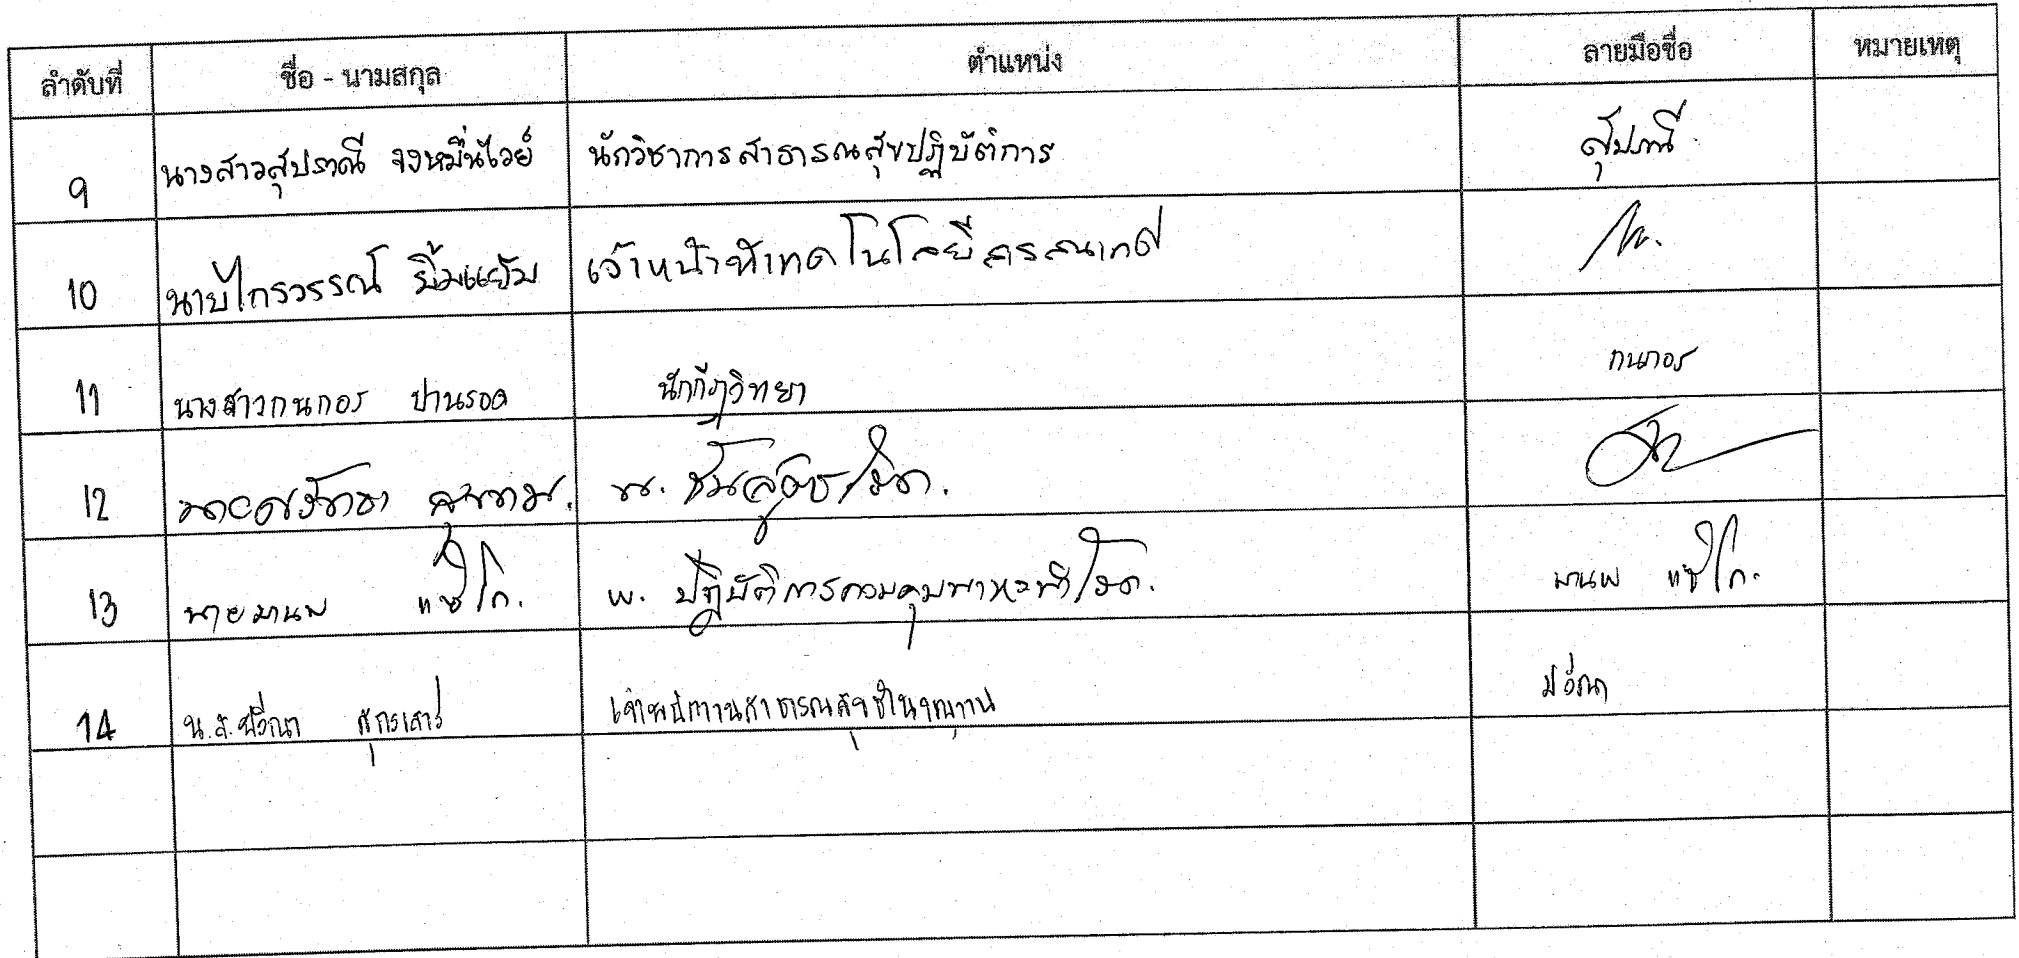 ลำดับที่ ชื่อ - นามสกุล ตำแหน่ง ลายมือชื่อ หมายเหตุ
9 นางสาวสุปราณี จงหมื่นไวย์ นักวิชาการสาธารณสุขปฏิบัติการ สุปราณี
10 นายไกรวรรณ์ ยิ้มแย้ม เจ้าหน้าที่เทคโนโลยีสารสนเทศ
11 นางสาวกนกอร ปานรอด นักกีฏวิทยา กนกอร
12 พ. ชันสูตรโรค.
13 นายมานพ แซ่โก. พ. ปฏิบัติการควบคุมพาหะนำโรค. มานพ แซ่โก.
14 น.ส. เจ้าพนักงานสาธารณสุขชำนาญงาน